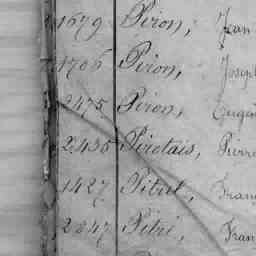 1679 Piron, Jean
1706 Piron, Joseph
2475 Piron, Eugèn
2435 Pirotais, Pierre
1427 Pitrel, Franç
2847 Pitri, Fran